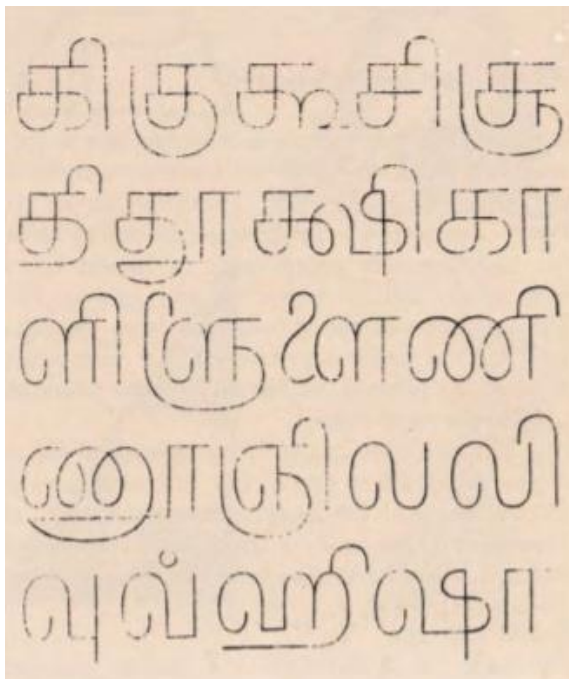 கி கு கூ சி சூ
தி தூ க்ஷி கா
ளி ளூ ளை ணி
ணூ ஞி ல லி
வு வ் ஹி ஷா